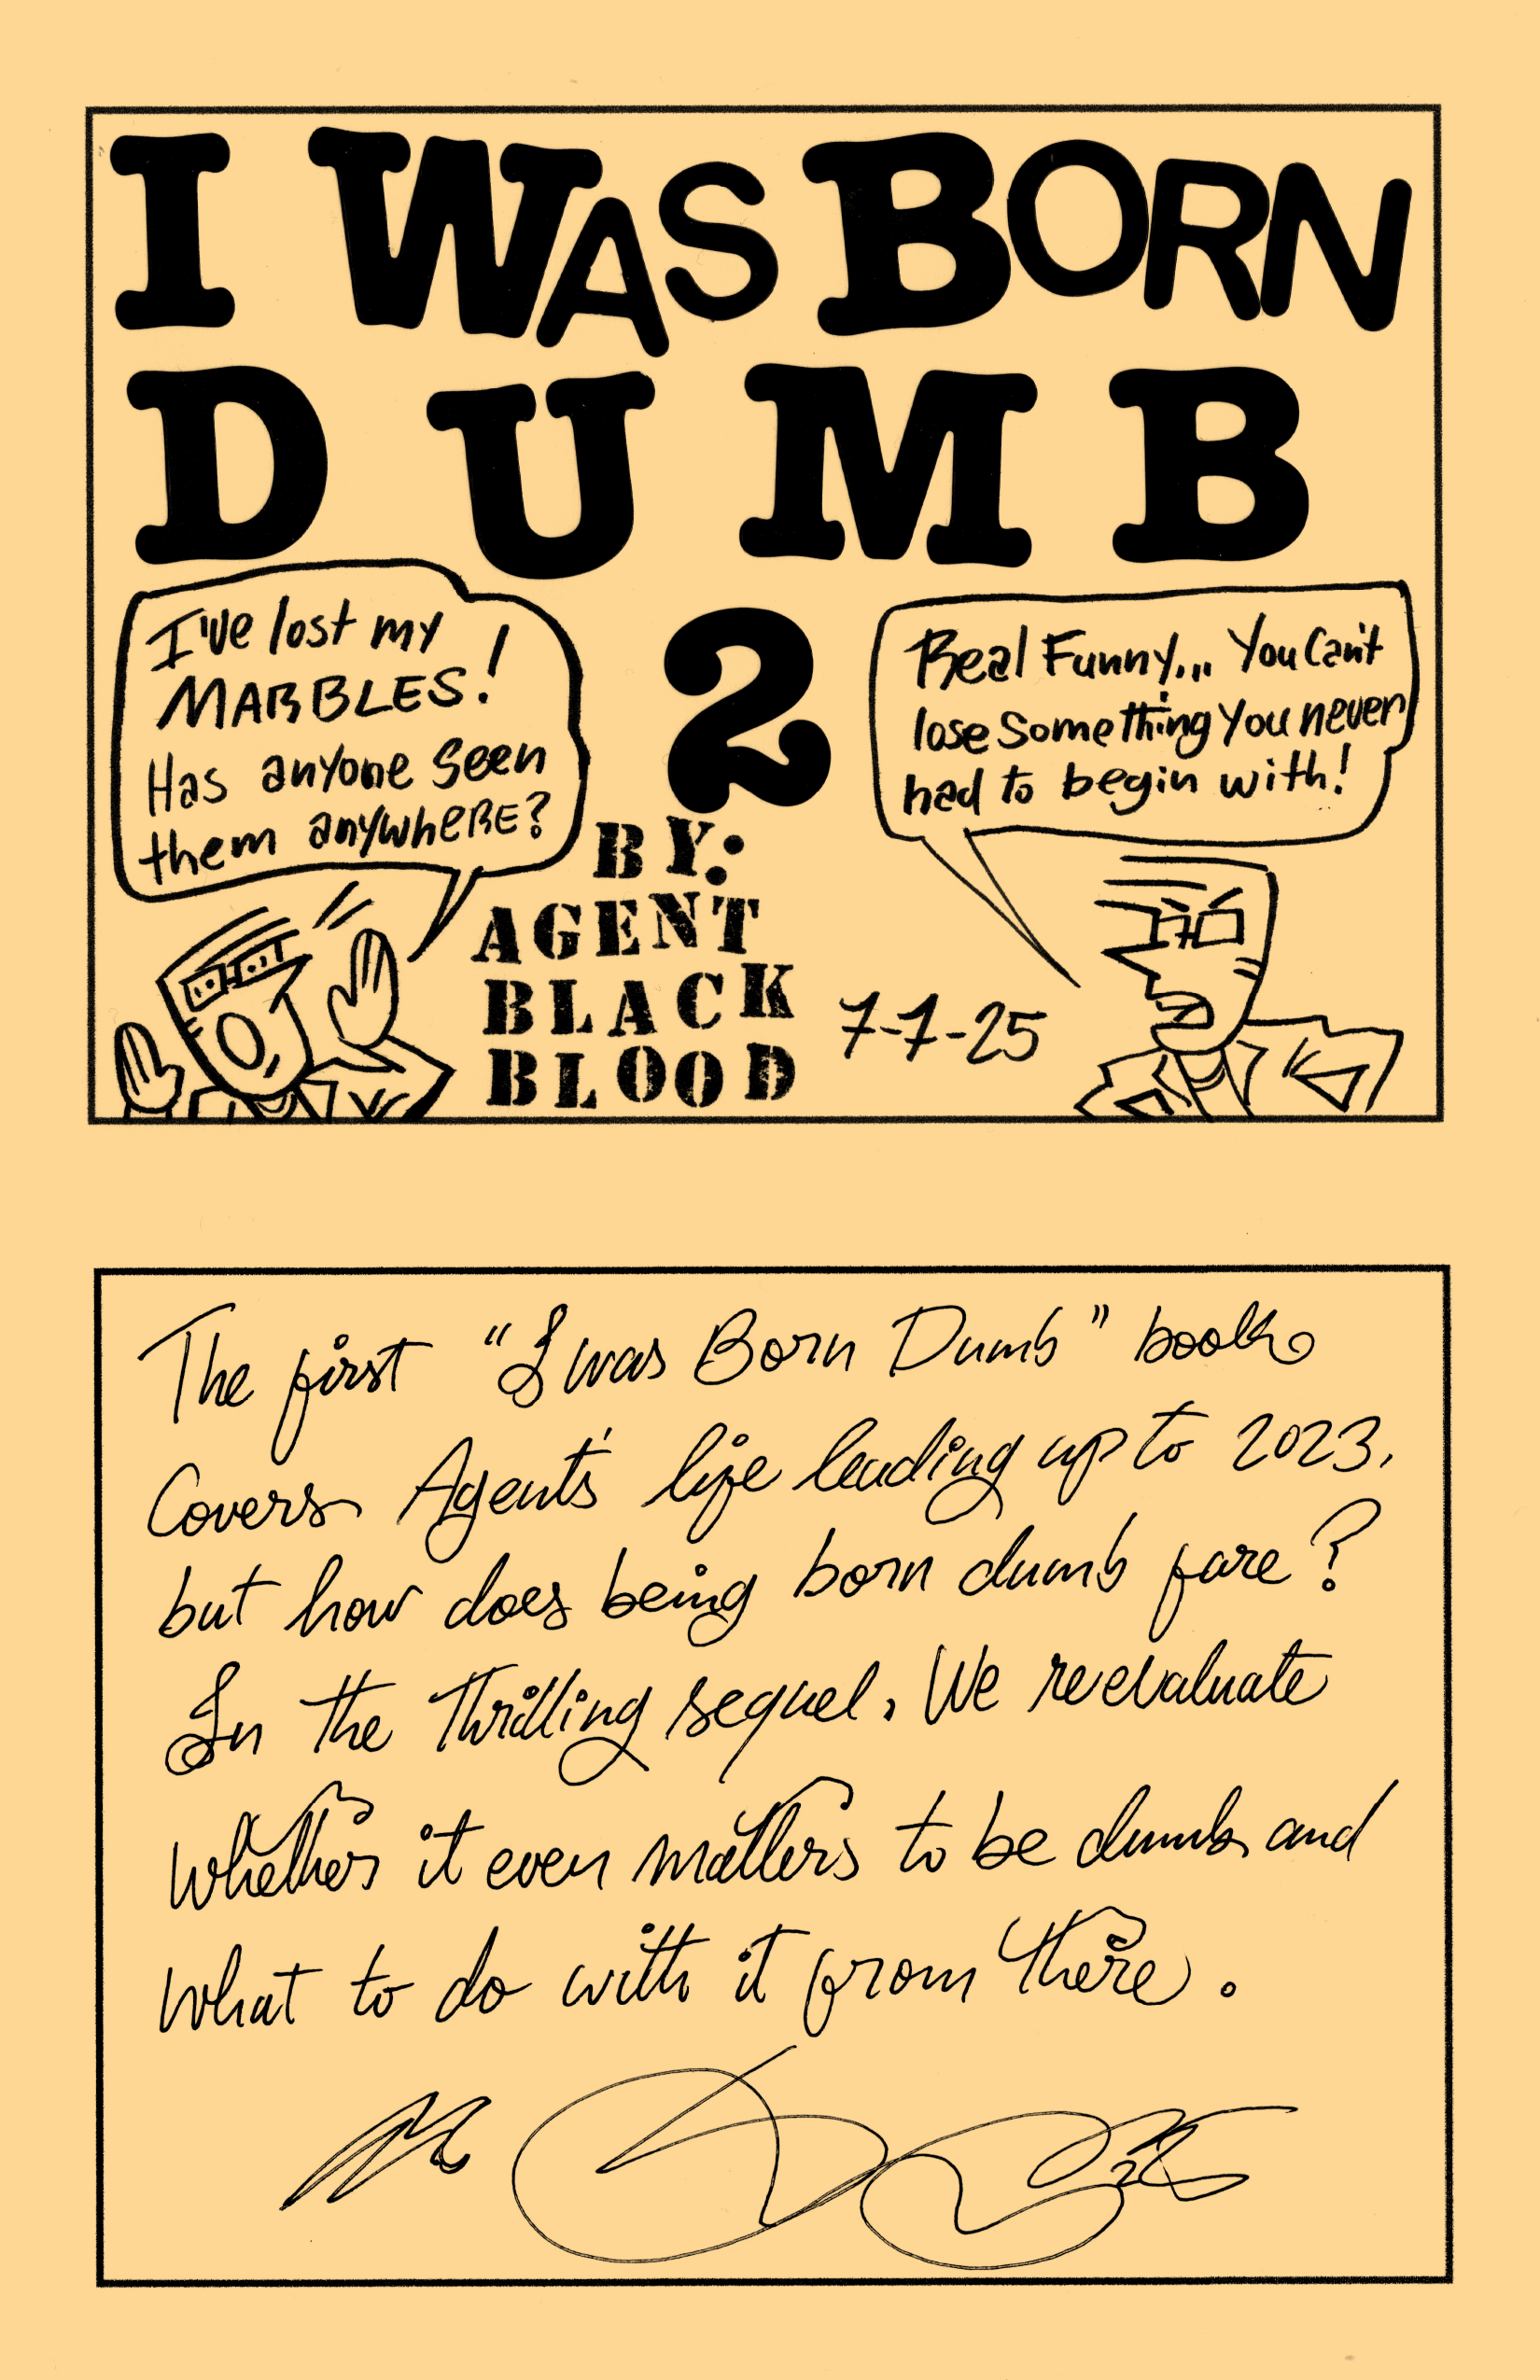 I WAS BORN
DUMB
2
I've lost my
MARBLES!
Has anyone seen
them anywhere?
Real Funny... You Can't
lose Something You never
had to begin with!
BY:
AGENT
BLACK
BLOOD
7-7-25
The first "I was Born Dumb" book
Covers Agent's life leading up to 2023.
but how does being born dumb fare?
In the Thrilling sequel. We reevaluate
whether it even matters to be dumb and
what to do with it from there.